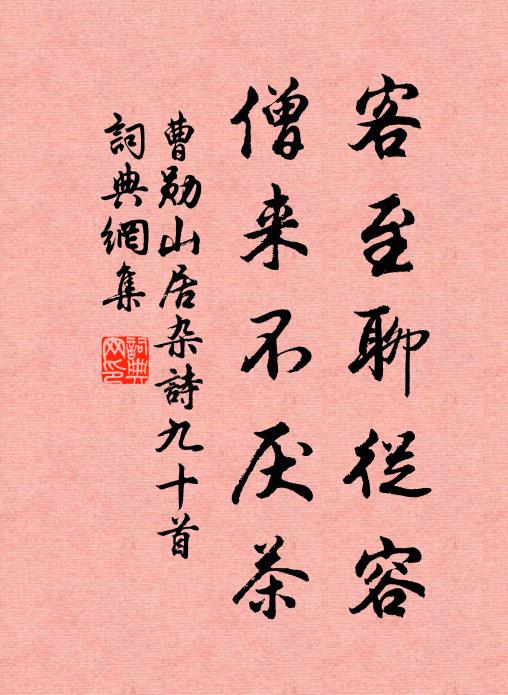 客至聊從容
僧来不厌茶
曹勋山居杂詩九十首
詞典網集
詞典網印